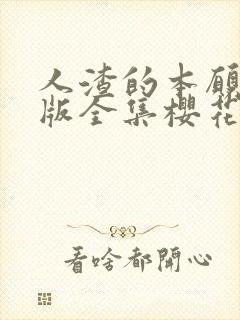 人渣的本愿
版全集樱花
看啥都開心